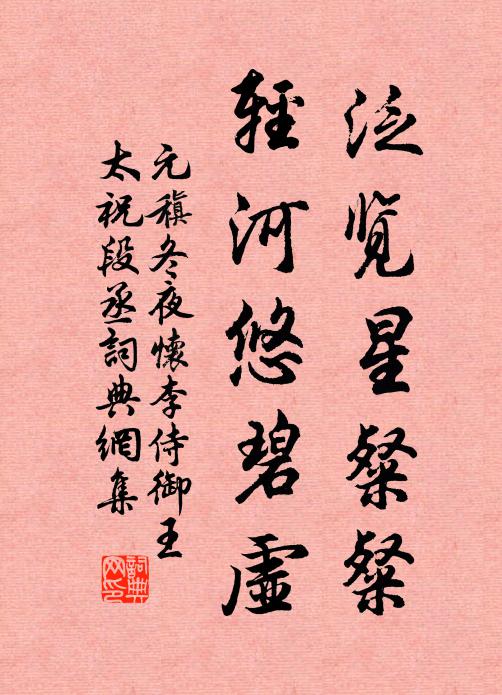 泛览星粲粲
輕河悠碧虛
元稹冬夜懷李侍御王
太祝段丞詞典網集
詞典网印